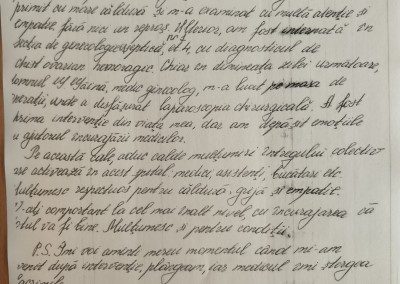 primit cu mare căldură și m-a examinat cu multă atenție și
empatie, fără nici un repros. Ulterior, am fost internată în
secția de ginecologie septică, et. 4, cu diagnosticul de
chist ovarian hemoragic. Chiar în dimineața zilei următoare,
domnul medic ginecolog, m-a luat pe masa de
operații, unde a desfășurat laparoscopia chirurgicală. A fost
prima intervenție din viața mea, dar am depășit emoțiile
cu ajutorul încurajării medicilor.
Pe această cale, aduc calde mulțumiri întregului colectiv
ce activează în acest spital: medici, asistenți, bucătari etc.
Mulțumesc respectuos pentru căldură, grijă și empatie.
V-ați comportat la cel mai înalt nivel, cu încurajarea că
totul va fi bine. Mulțumesc și pentru condiții.
P.S. Îmi voi aminti mereu momentul când mi-am
venit după intervenție, plângeam, iar medicul îmi stergea
lacrimile